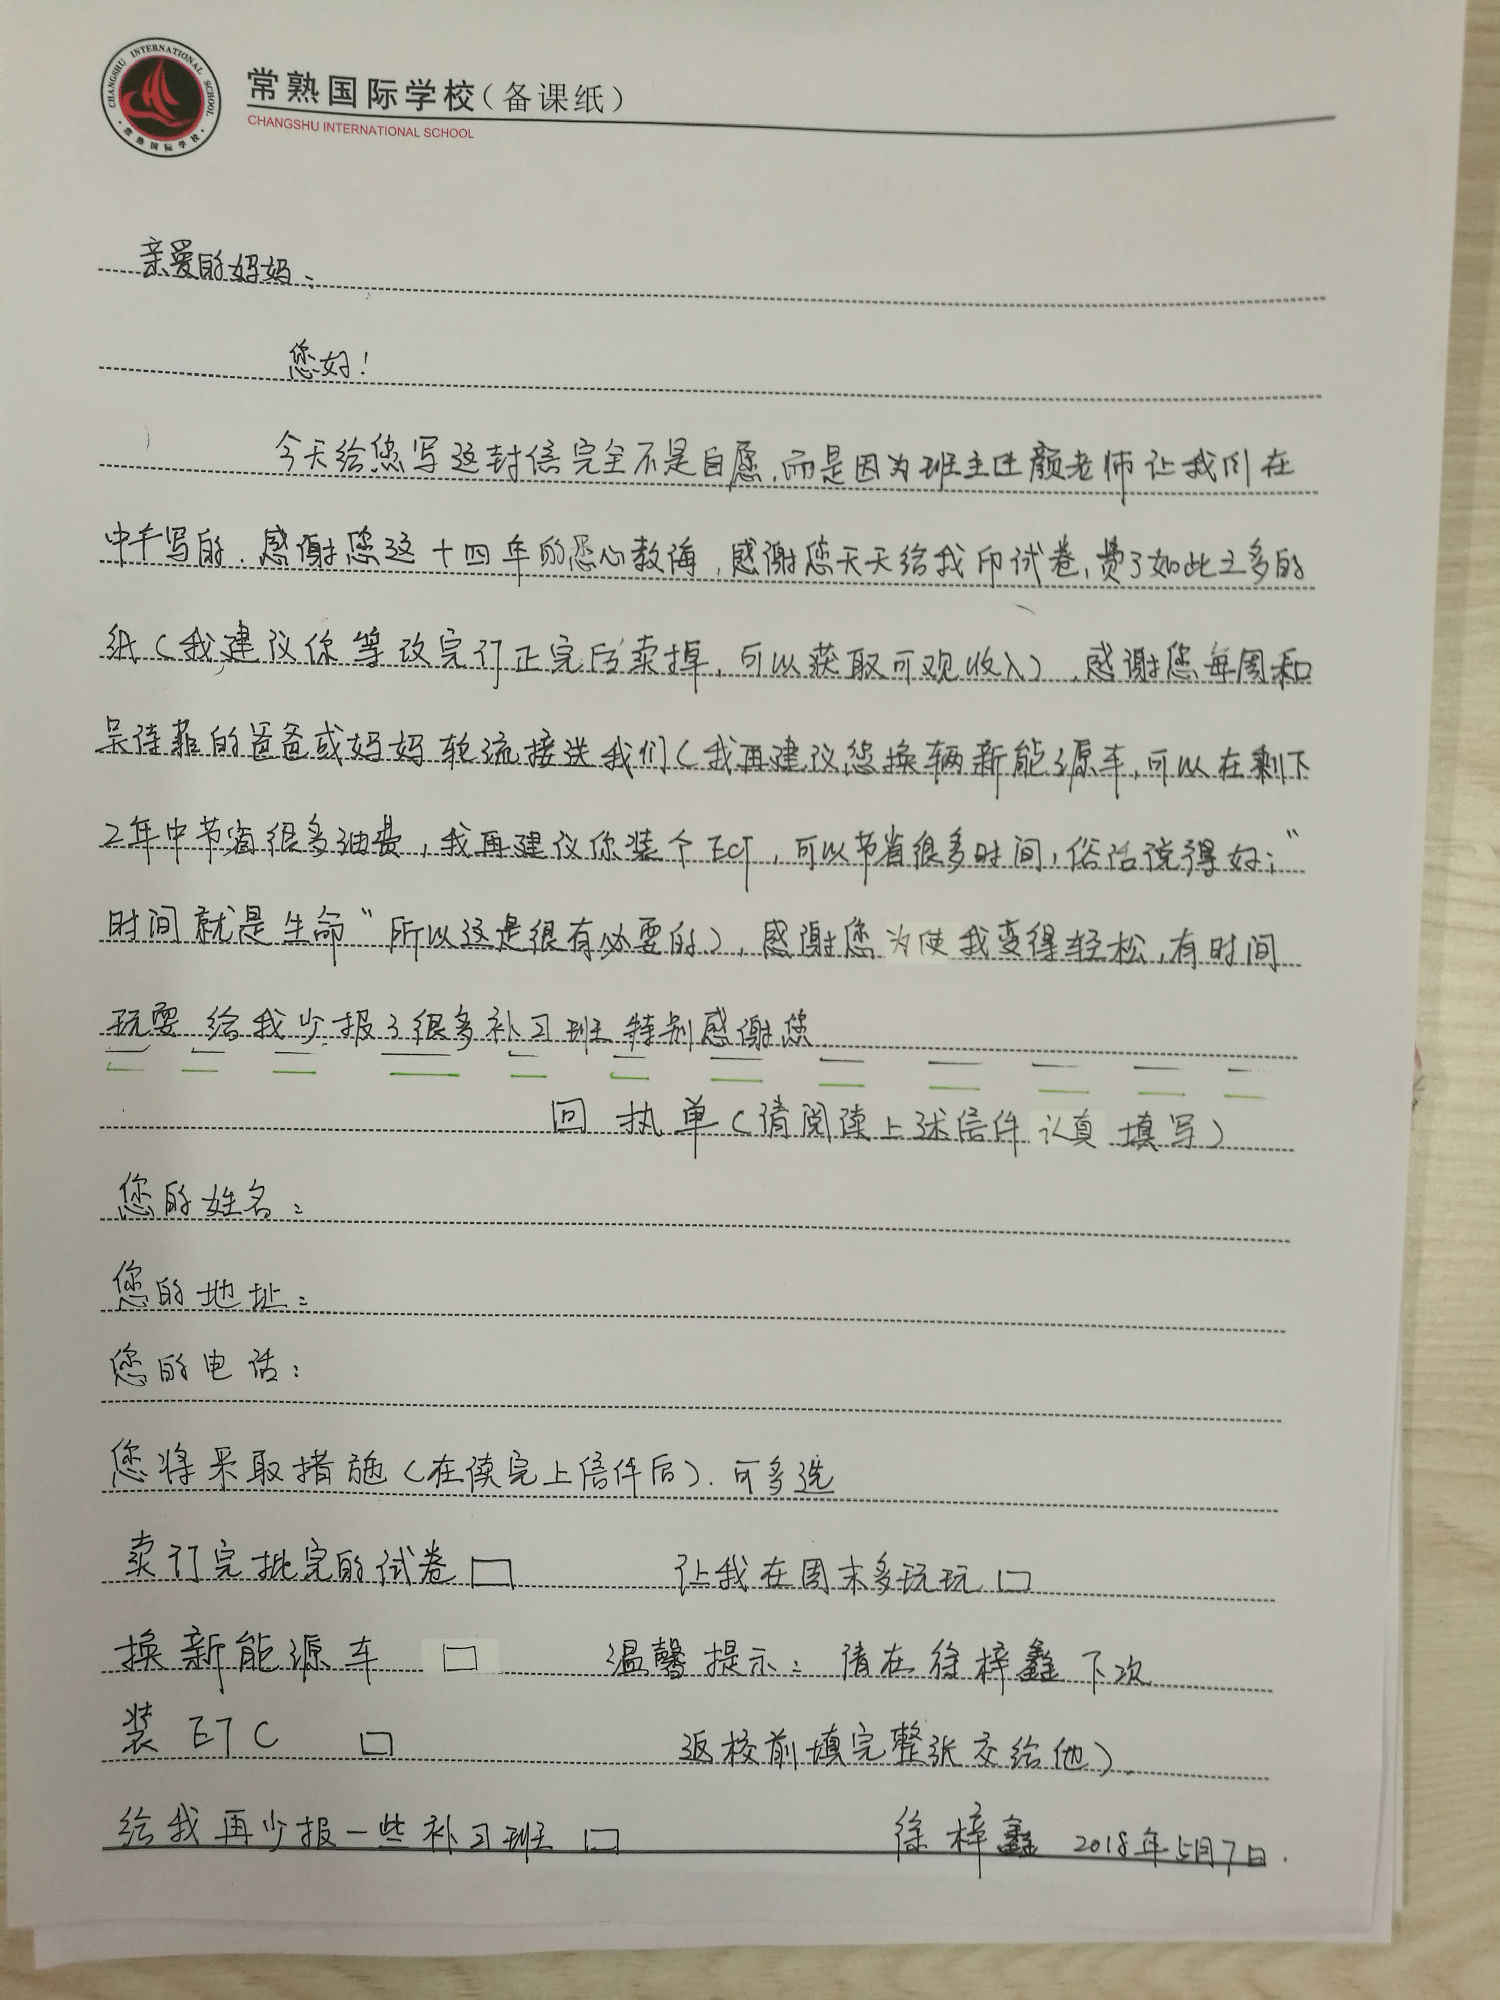 CHANGSHU INTERNATIONAL SCHOOL
常熟国际学校
常熟国际学校(备课纸)
CHANGSHU INTERNATIONAL SCHOOL
亲爱的妈妈:
您好!
今天给您写这封信完全不是自愿,而是因为班主任颜老师让我们在
中午写的.感谢您这十四年的悉心教诲,感谢您天天给我印试卷,费了如此之多的
纸(我建议你等改完订正完后卖掉,可以获取可观收入),感谢您每周和
吴倩菲的爸爸或妈妈轮流接送我们(我再建议您换辆新能源车,可以在剩下
2年中节省很多油费,我再建议你装个ECT,可以节省很多时间,俗话说得好:“
时间就是生命”所以这是很有必要的),感谢您为使我变得轻松,有时间
玩耍 给我少报了很多补习班 特别感谢您
回执单(请阅读上述信件认真填写)
您的姓名:
您的地址:
您的电话:
您将采取措施(在读完上信件后).可多选
卖订完批完的试卷□ 让我在周末多玩玩□
换新能源车 □ 温馨提示:请在徐梓鑫下次
装ETC □ 返校前填完整张交给他).
给我再少报一些补习班□ 徐梓鑫 2018年5月7日.